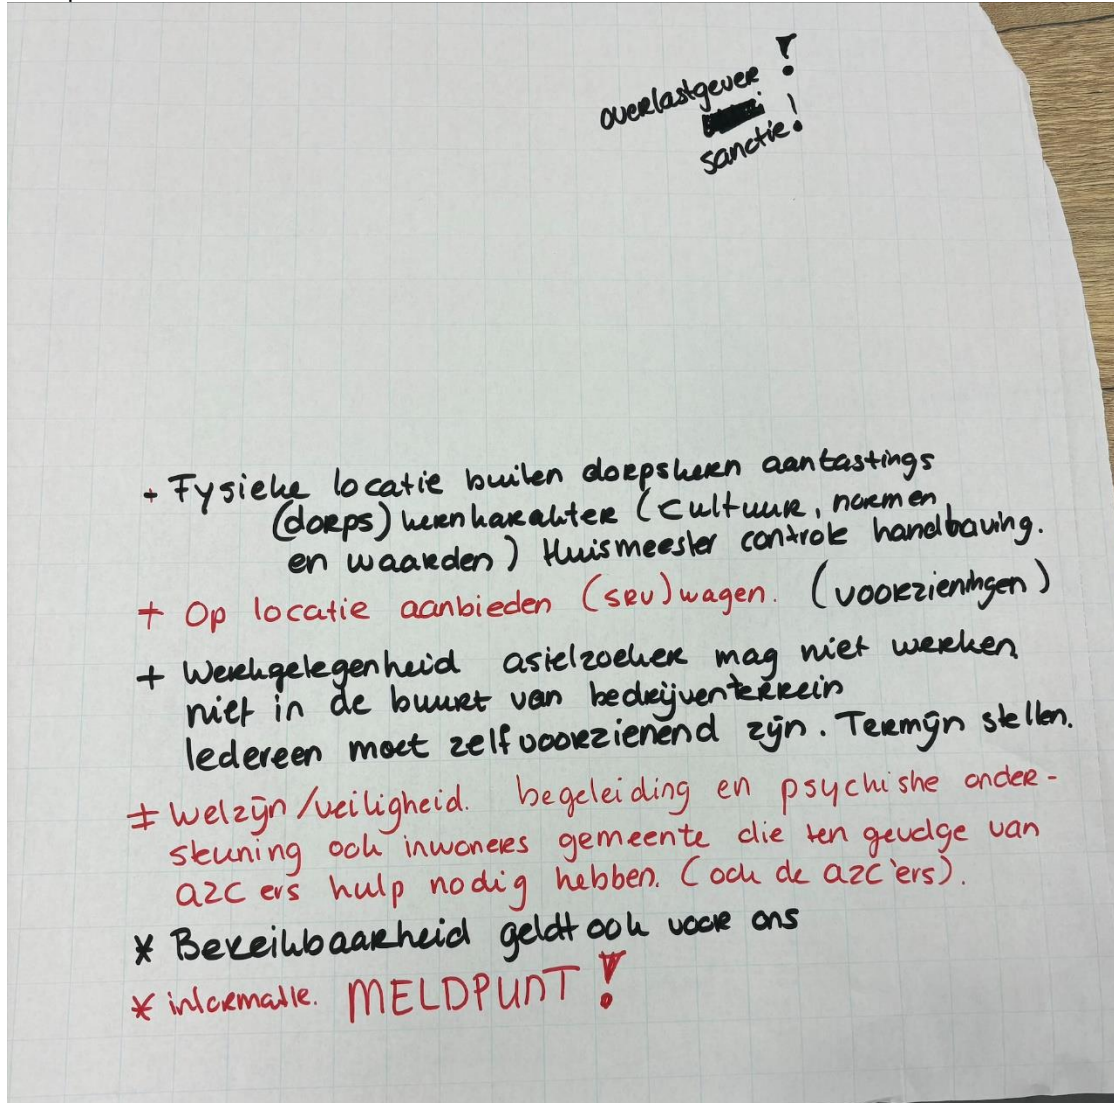 overlastgever !
sanctie!
+ Fysieke locatie buiten dorpskern aantastings
(dorps) kernkarakter (cultuur, normen
en waarden) Huismeester controle handhaving.
+ Op locatie aanbieden (SRV) wagen. (voorzieningen)
+ Werkgelegenheid asielzoeker mag niet werken
niet in de buurt van bedrijventerrein
Iedereen moet zelfvoorzienend zijn. Termijn stellen.
+ Welzijn/veiligheid. begeleiding en psychishe onder-
steuning ook inwoners gemeente die ten gevolge van
azc ers hulp nodig hebben. (ook de azc'ers).
* Bereikbaarheid geldt ook voor ons
* informatie. MELDPUNT !